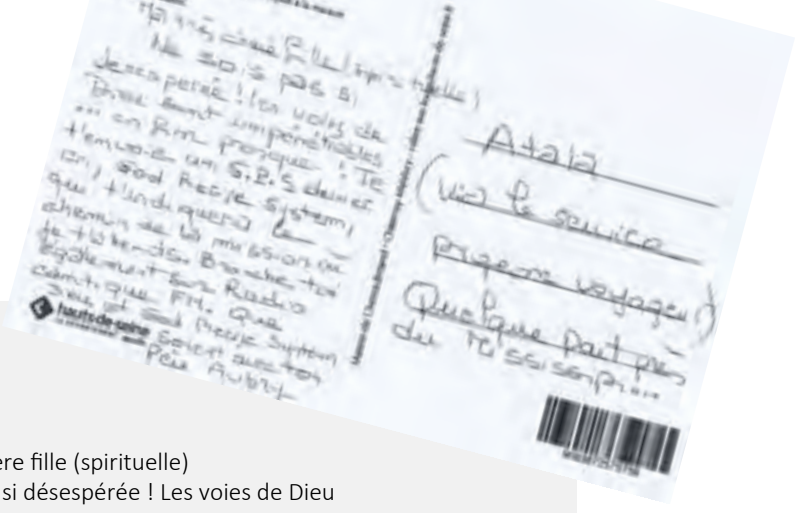 Ma très chère fille (spirituelle)
Ne sois pas si
désespérée ! Les voies de
Dieu sont impénétrables
... en fin presque ! Te
t'envoie un G.P.S dernier
cri, God Rescue System,
qui t'indiquera le
chemin de la mission où
je t'attends. Branche toi
également sur Radio
Cantique FM. Que
Dieu et God Rescue System
soient avec toi
Père Aubry
hauts-de-seine
Atala
(via le service
pigeons voyageur)
Quelque part près
du Mississippi...
ère fille (spirituelle)
si désespérée ! Les voies de Dieu